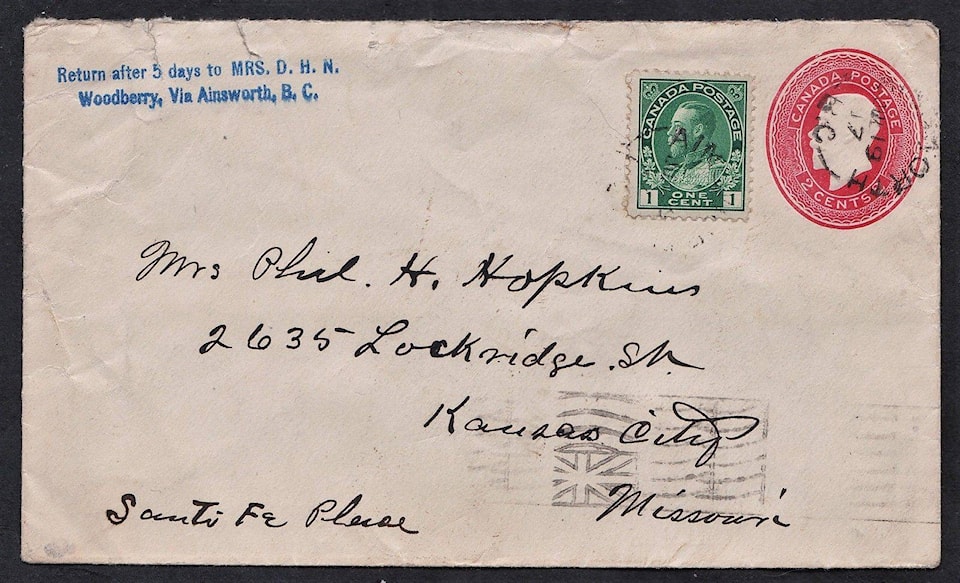 Return after 5 days to MRS. D. H. N.
Woodberry, Via Ainsworth, B. C.
CANADA POSTAGE
1 ONE CENT 1
CANADA POSTAGE
2 CENTS
Mrs Phil. H. Hopkins
2635 Lockridge St.
Kansas City
Missouri
Santa Fe Place